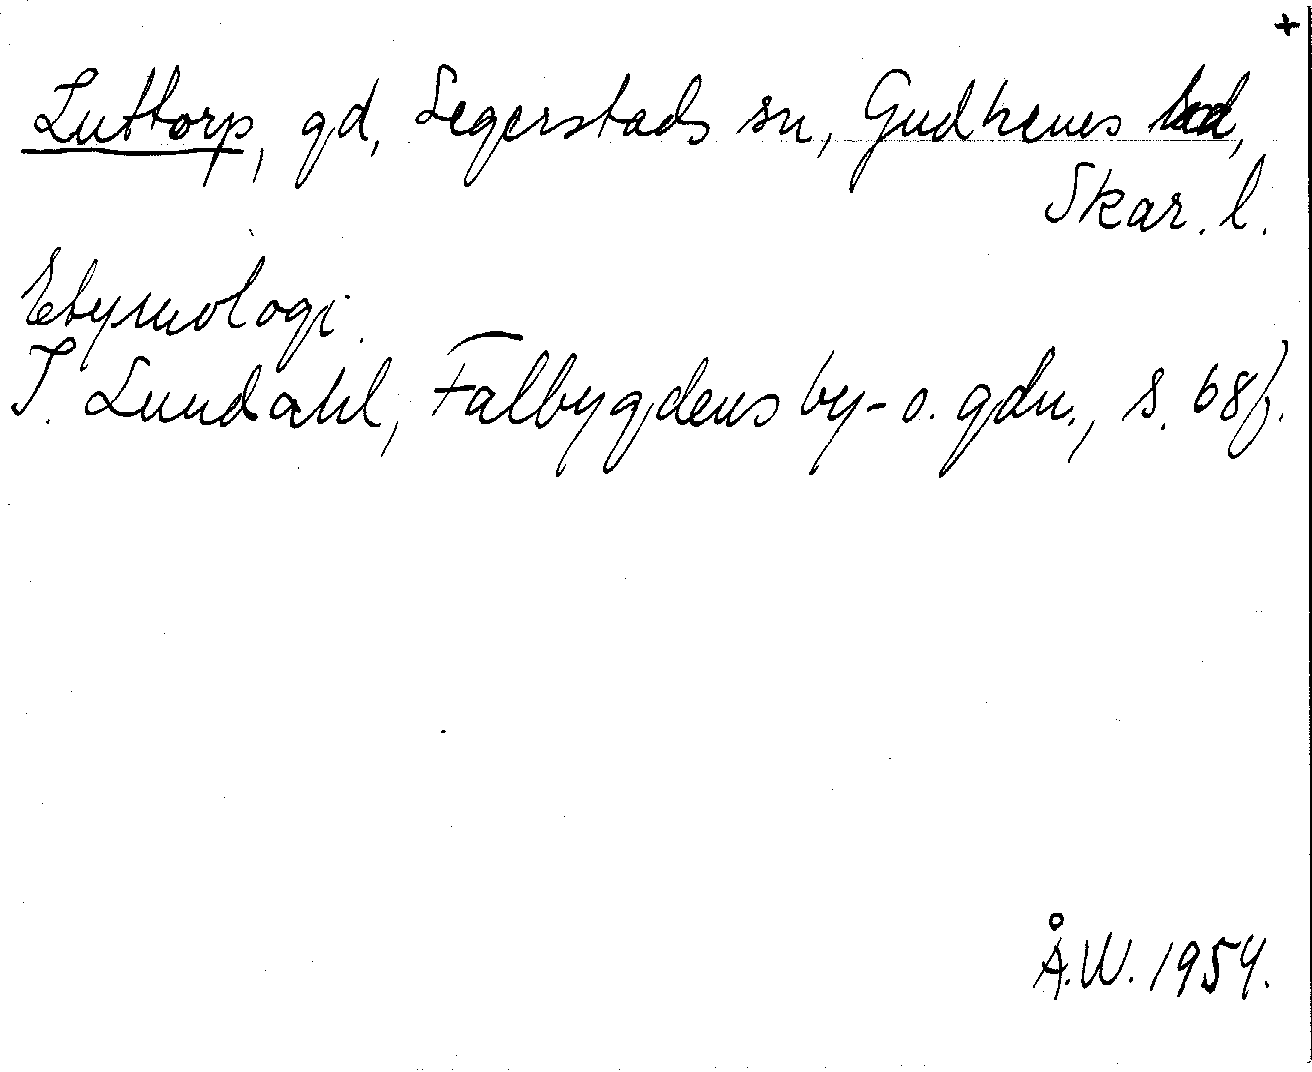 +
Luttorp, gd, Segerstads sn, Gudhems hd,
Skar. l.
Etymologi.
I. Lundahl, Falbygdens by- o. gdn., s. 68f.
Å.W. 1954.